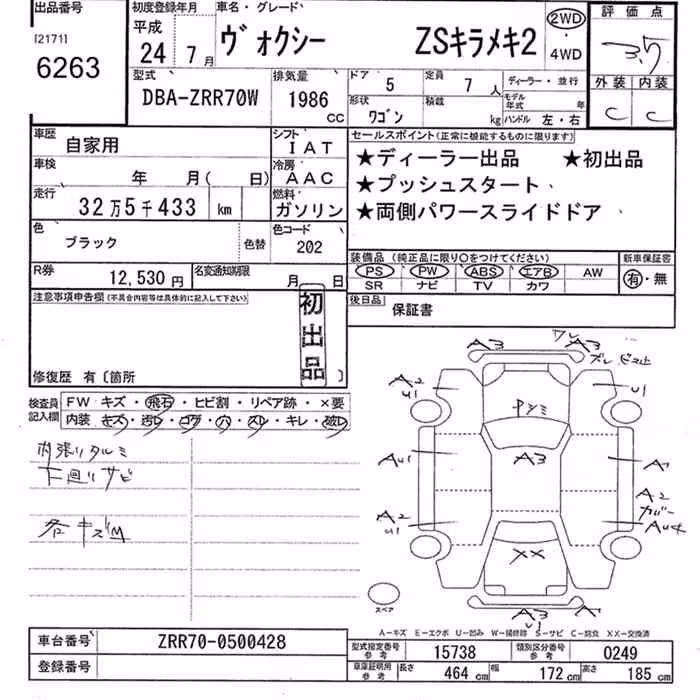 出品番号
[2171]
6263
初度登録年月
平成
24 年 7 月
車名・グレード
ヴォクシー ZSキラメキ2
2WD
・
4WD
評価点
3.5
外装 内装
C C
型式
DBA-ZRR70W
排気量
1986 CC
ドア 5
定員 7 人
ディーラー・並行
形状 ワゴン
積載 kg
モデル年式 年
ハンドル 左・右
車歴 自家用
シフト IAT
車検 年 月( 日)
冷房 AAC
走行 32万5千433 km
燃料 ガソリン
色 ブラック
色替
色コード 202
R券 12,530 円
名変通知期限 月 日
セールスポイント(正常に機能するものに限ります)
★ディーラー出品 ★初出品
★プッシュスタート
★両側パワースライドドア
装備品 (純正品に限り○をつけてください)
PS PW ABS エアB AW
SR ナビ TV カワ
新車保証書
有・無
後日品
保証書
注意事項申告欄(不具合内容等は具体的に記入して下さい)
初出品
修復歴 有〔箇所 〕
検査員記入欄
FW キズ・飛石・ヒビ割・リペア跡・×要
内装 キズ・汚レ・コゲ・穴・スレ・キレ・破レ
内張りタルミ
下廻りサビ
各キズM
ワレ
A3 A3
ズレ ビス止
A2 U1
U1
AU1
A3
A1
A2
カバー
A2 U1
AU4
XX
A3 U1
スペア
A-キズ E-エクボ U-凹み W-補修跡 S-サビ C-腐食 XX-交換済
車台番号 ZRR70-0500428
登録番号
型式指定番号 参考 15738
類別区分番号 参考 0249
車庫証明用 参考
長さ 464 cm 幅 172 cm 高さ 185 cm